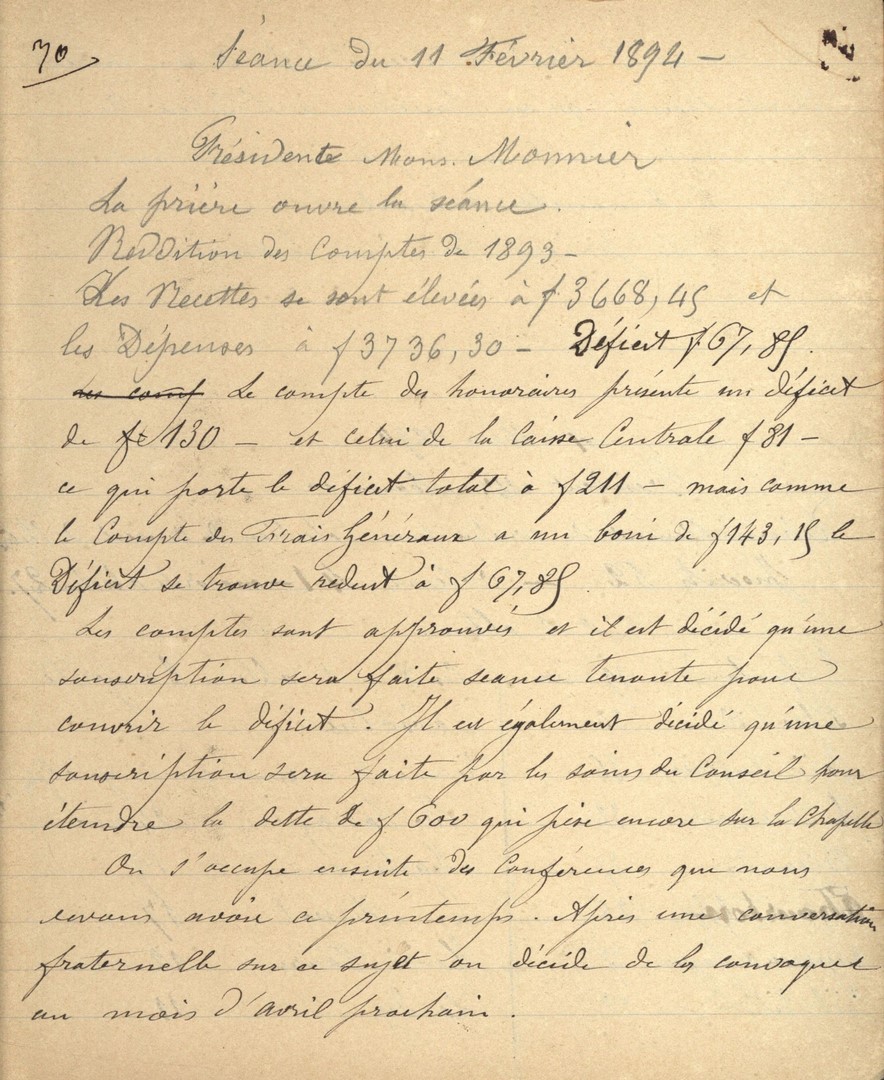 70
Séance du 11 Février 1894 -
Présidente Mons. Monnier
La prière ouvre la séance.
Reddition des Comptes de 1893 -
Les Recettes se sont élevées à f 3668,45 et
les Dépenses à f 3736,30 - Déficit f 67,85.
les comp Le compte des honoraires présente un déficit
de f 130 - et celui de la Caisse Centrale f 81 -
ce qui porte le déficit total à f 211 - mais comme
le Compte des Frais Généraux a un boni de f 143,15 le
Déficit se trouve reduit à f 67,85.
Les comptes sont approuvés et il est décidé qu'une
souscription sera faite seance tenante pour
couvrir le déficit. Il est également décidé qu'une
souscription sera faite par les soins du Conseil pour
éteindre la dette de f 600 qui pèse encore sur la Chapelle
On s'occupe ensuite des Conférences que nous
devons avoir ce printemps. Après une conversation
fraternelle sur ce sujet on décide de les convoquer
au mois d'avril prochain.